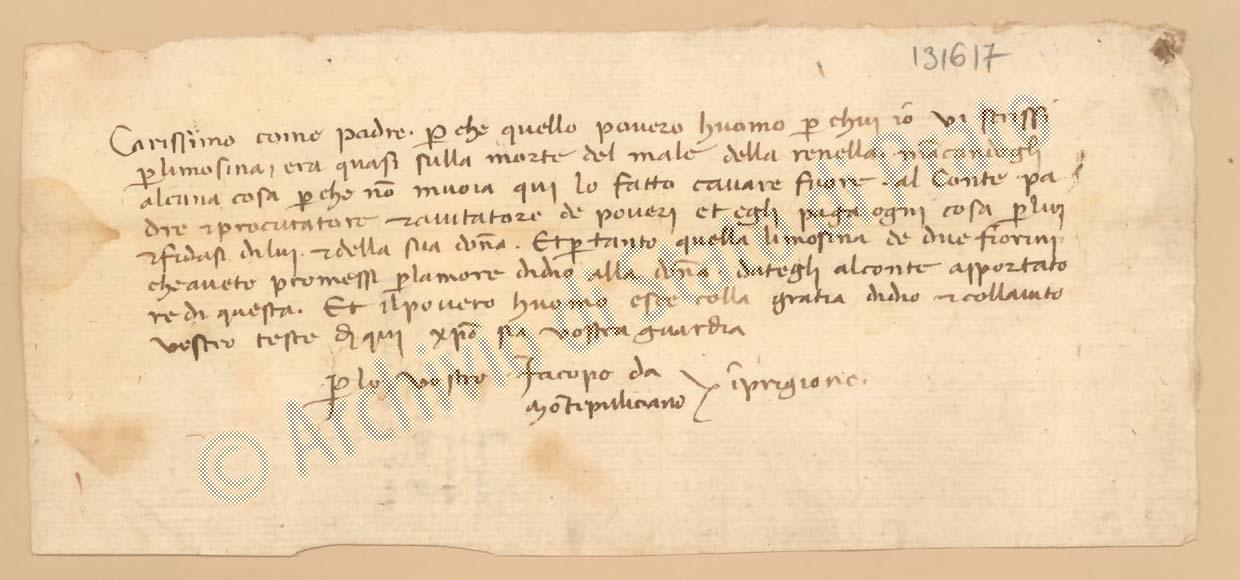 131617
Carissimo come padre. p che quello povero huomo p chui io vi scrissi
p limosina, era quasi sulla morte del male della renella, mãcandogli
alcuna cosa p che nõ muoia qui lo fatto cavare fuore. al Conte pa
dre & procuratore & aiutatore de poveri et egli paga ogni cosa p lui
& fidasi di lui. & della sua dõna. Et p tanto quella limosina de due fiorini
che avete promessi p lamore didio alla dõna, dategli al conte apportato
re di questa. Et il povero huomo esce colla gratia didio & collaiuto
vostro teste di qui xpõ sia vostra guardia
P lo vostro Jacopo da
Mõtepuliciano ĩ prigione.
© Archivio di Stato di Prato